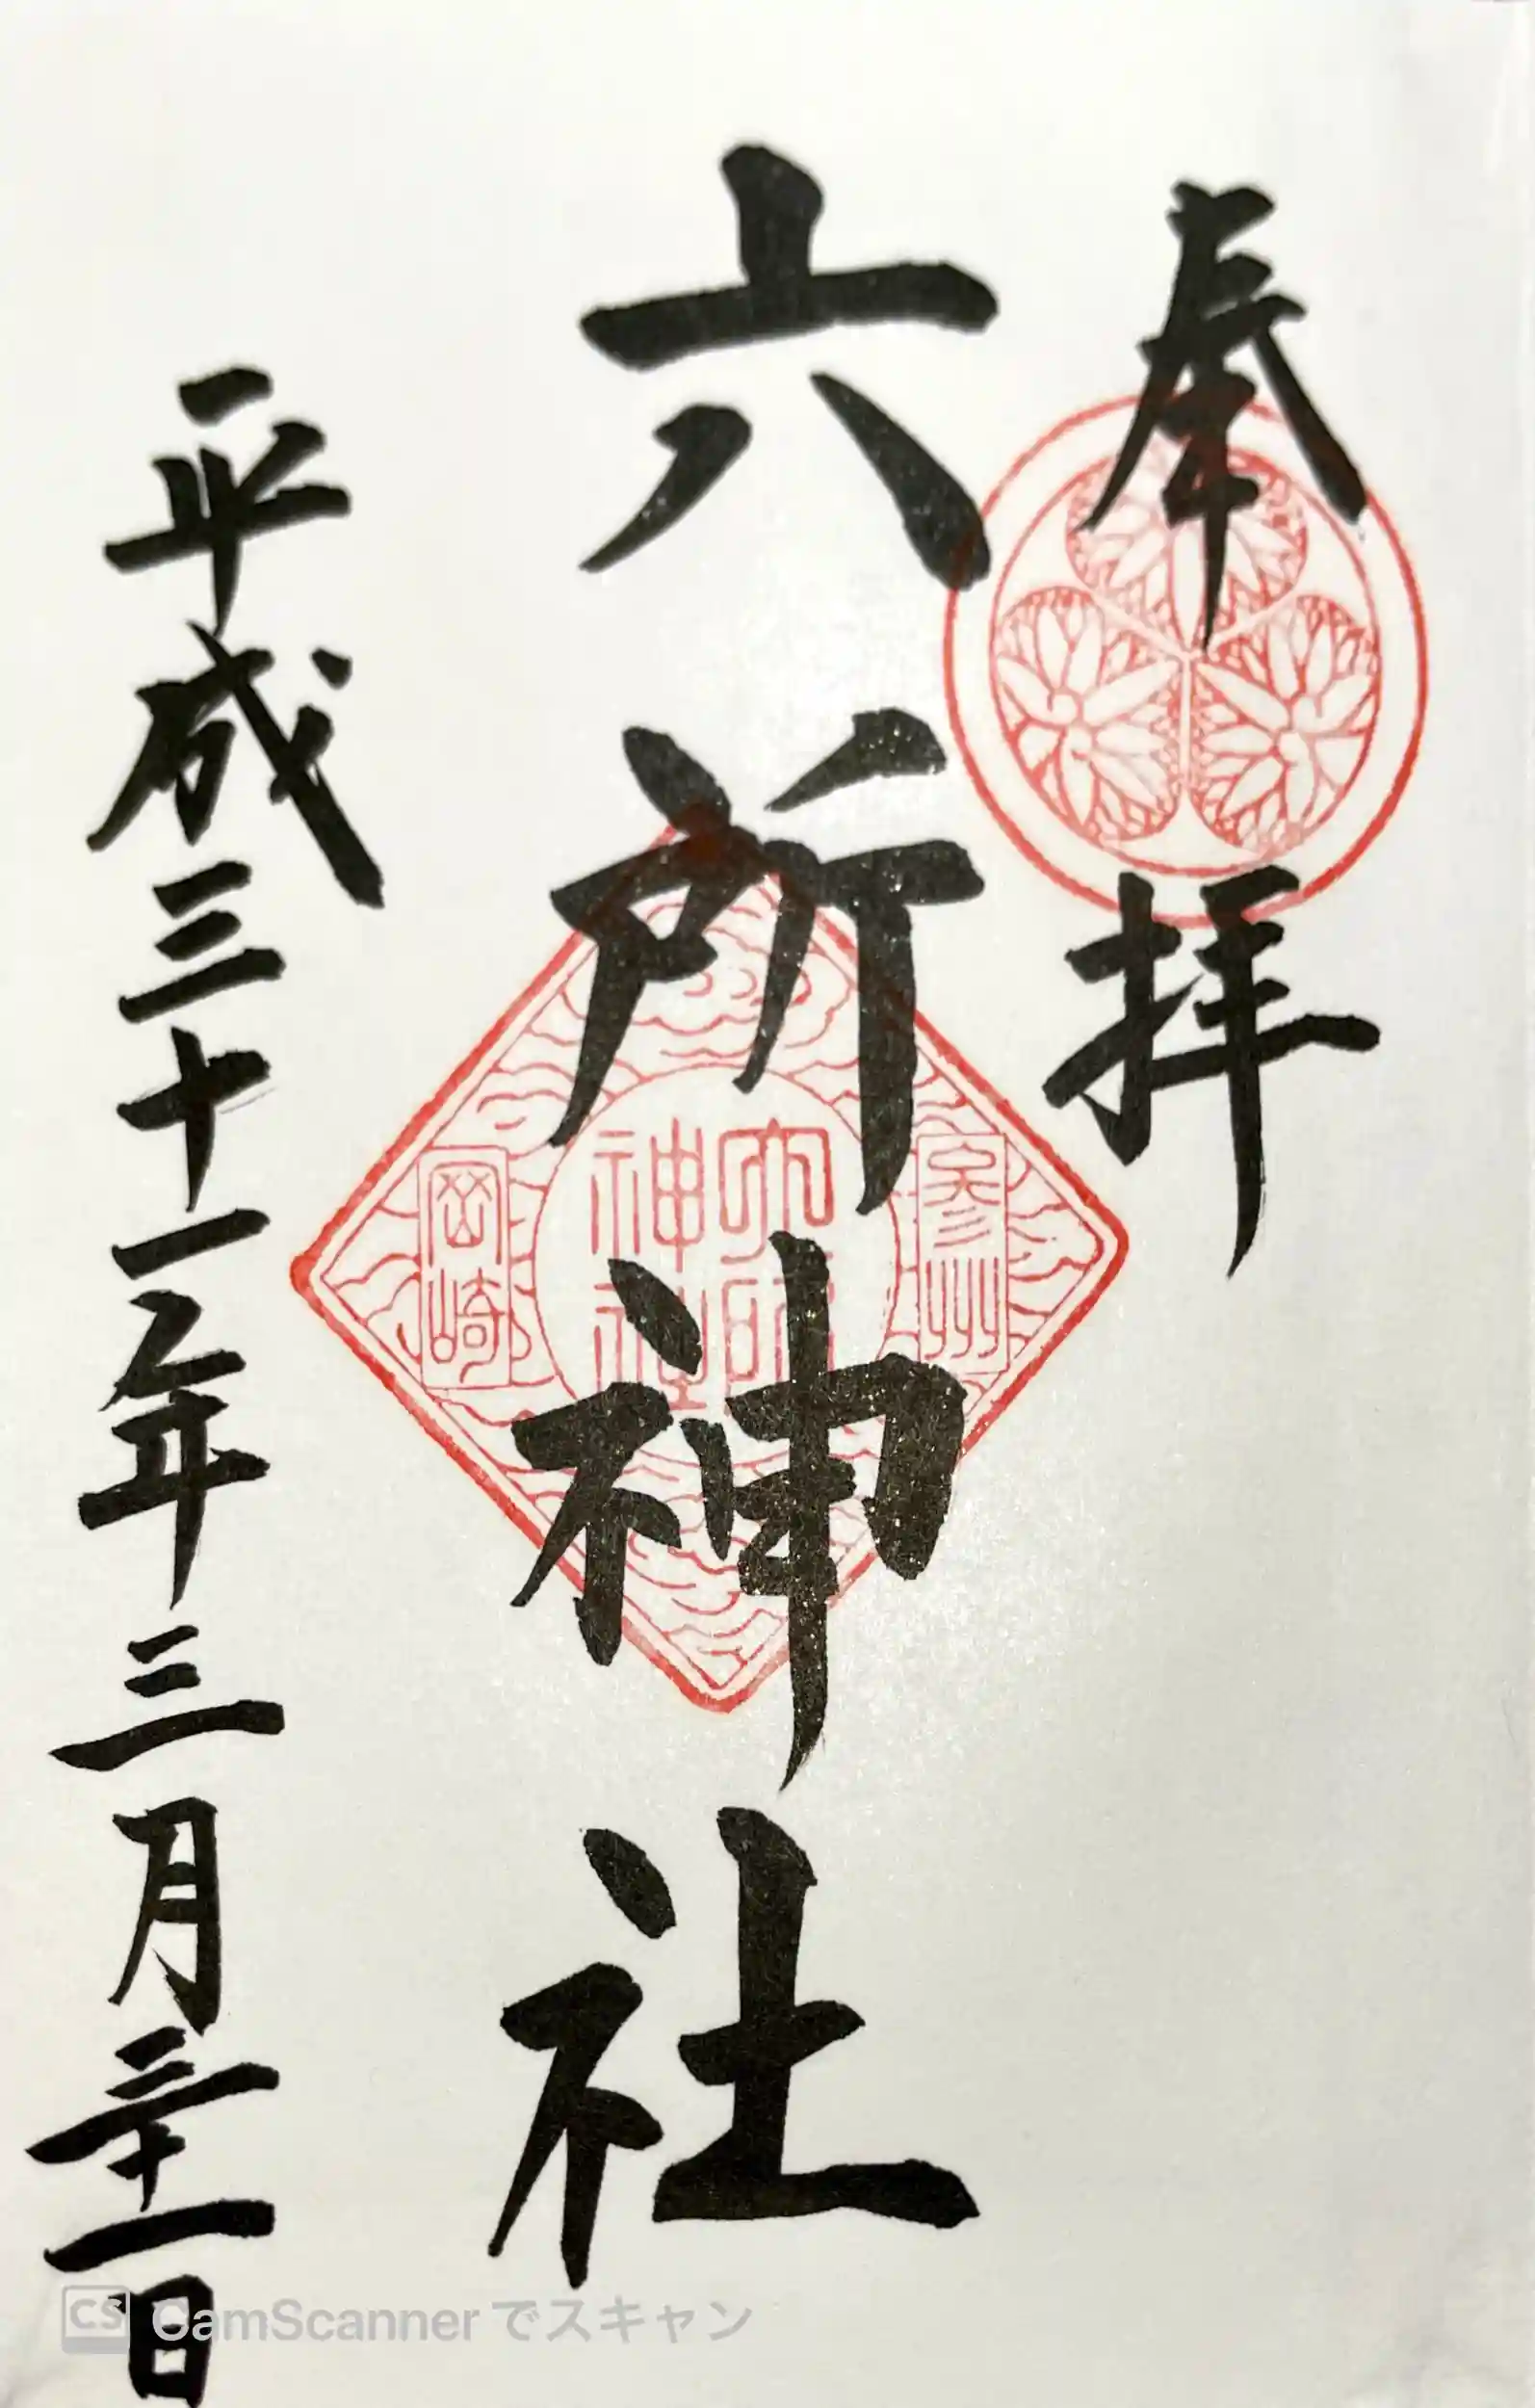 奉拝
参州
六所神社
六所神社
岡崎
平成三十一年三月三十一日
CS CamScannerでスキャン